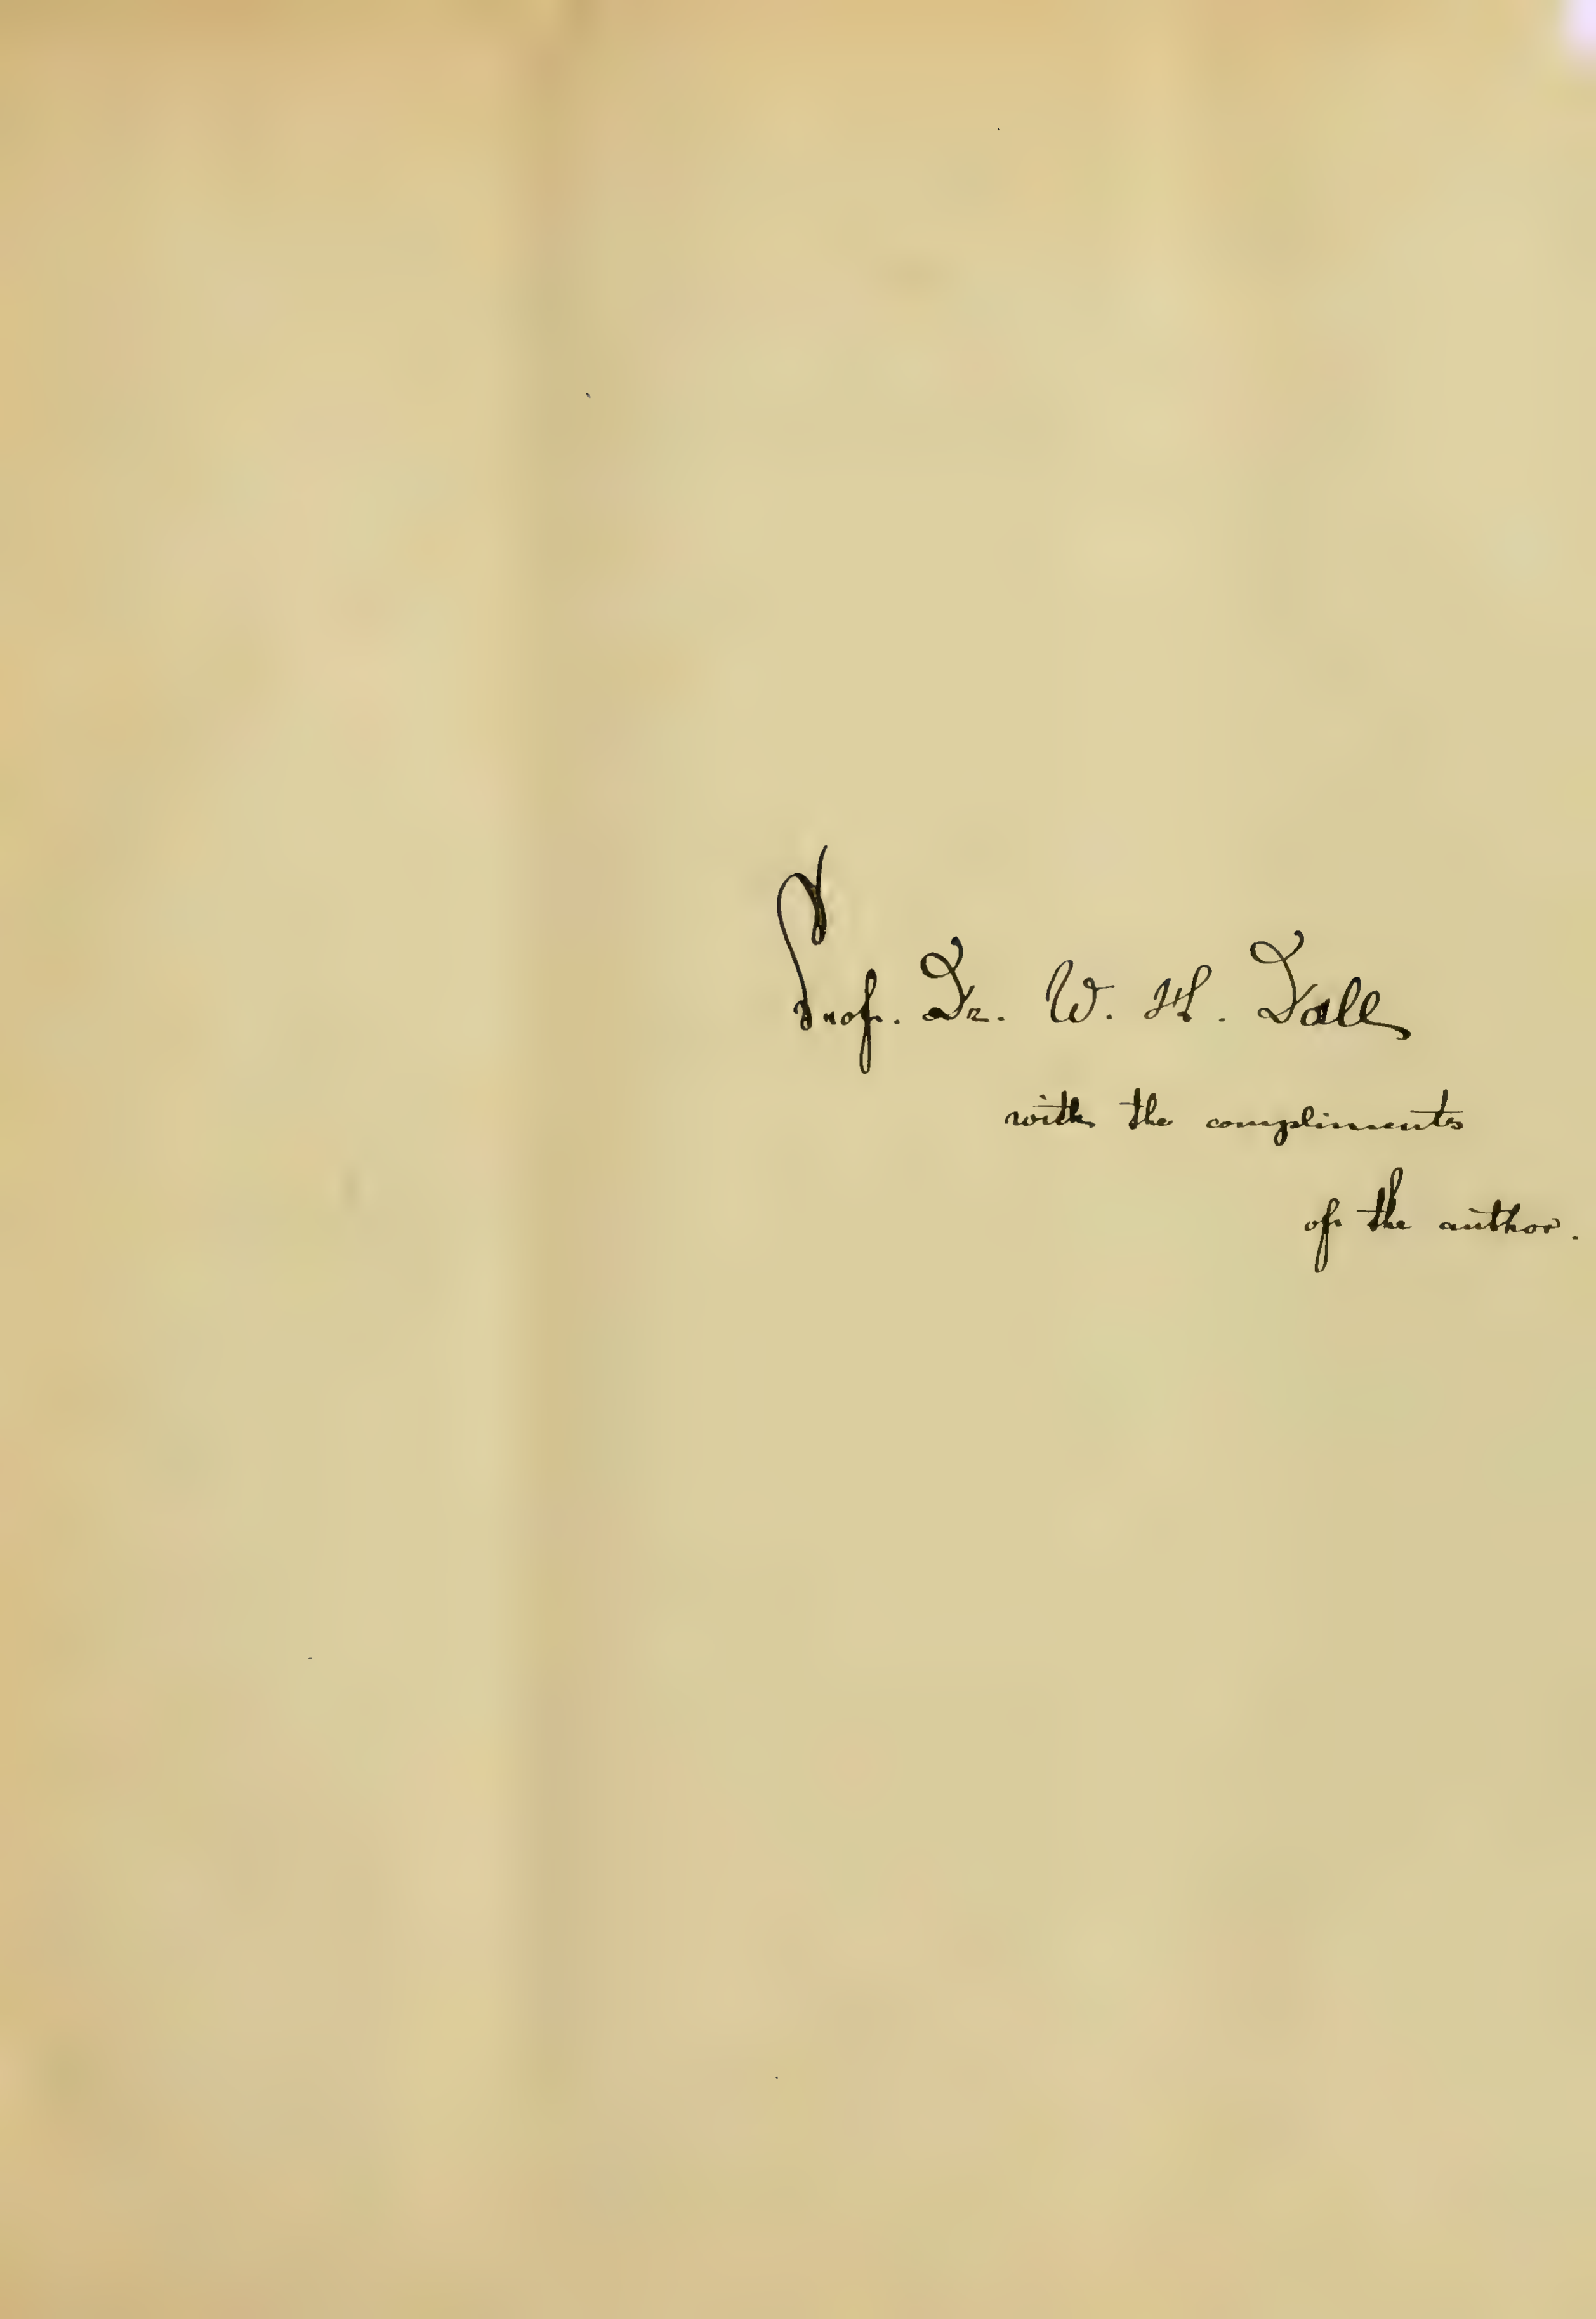 Prof. Dr. W. H. Dall
with the compliments
of the author.